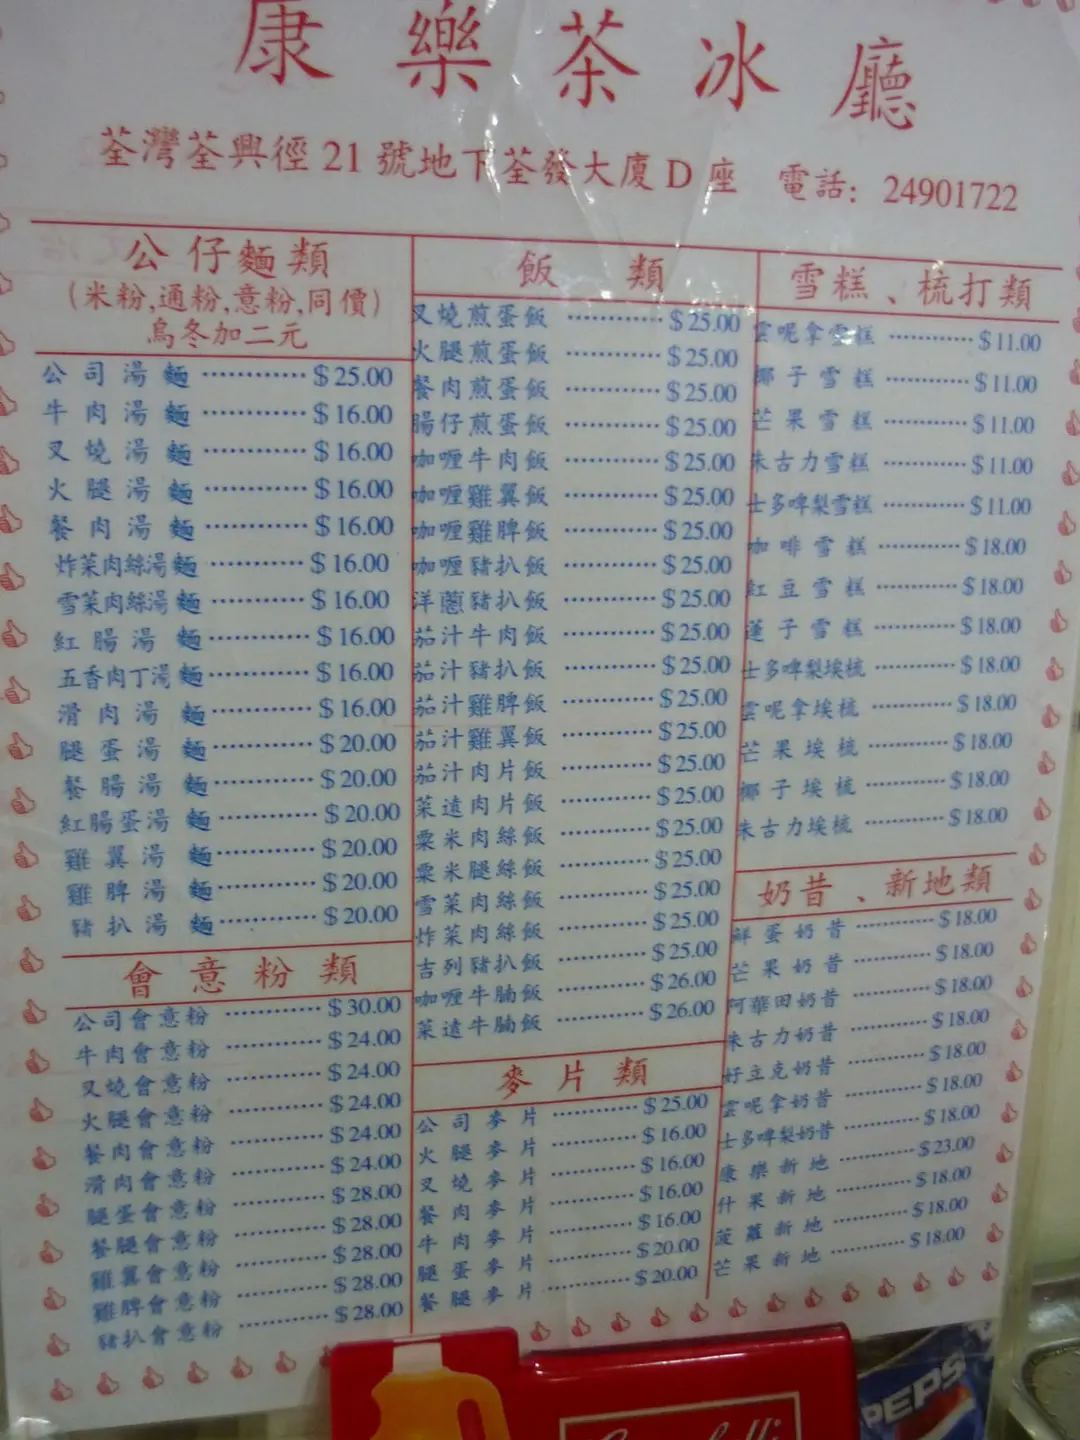 康樂茶冰廳
荃灣荃興徑21號地下荃發大廈D座 電話: 24901722
公仔麵類
(米粉,通粉,意粉,同價)
烏冬加二元
公司湯麵 ············ $25.00
牛肉湯麵 ············ $16.00
叉燒湯麵 ············ $16.00
火腿湯麵 ············ $16.00
餐肉湯麵 ············ $16.00
炸菜肉絲湯麵 ············ $16.00
雪菜肉絲湯麵 ············ $16.00
紅腸湯麵 ············ $16.00
五香肉丁湯麵 ············ $16.00
滑肉湯麵 ············ $16.00
腿蛋湯麵 ············ $20.00
餐腸湯麵 ············ $20.00
紅腸蛋湯麵 ············ $20.00
雞翼湯麵 ············ $20.00
雞脾湯麵 ············ $20.00
豬扒湯麵 ············ $20.00
會意粉類
公司會意粉 ············ $30.00
牛肉會意粉 ············ $24.00
叉燒會意粉 ············ $24.00
火腿會意粉 ············ $24.00
餐肉會意粉 ············ $24.00
滑肉會意粉 ············ $24.00
腿蛋會意粉 ············ $28.00
餐腿會意粉 ············ $28.00
雞翼會意粉 ············ $28.00
雞脾會意粉 ············ $28.00
豬扒會意粉 ············ $28.00
飯類
叉燒煎蛋飯 ············ $25.00
火腿煎蛋飯 ············ $25.00
餐肉煎蛋飯 ············ $25.00
腸仔煎蛋飯 ············ $25.00
咖喱牛肉飯 ············ $25.00
咖喱雞翼飯 ············ $25.00
咖喱雞脾飯 ············ $25.00
咖喱豬扒飯 ············ $25.00
洋蔥豬扒飯 ············ $25.00
茄汁牛肉飯 ············ $25.00
茄汁豬扒飯 ············ $25.00
茄汁雞脾飯 ············ $25.00
茄汁雞翼飯 ············ $25.00
茄汁肉片飯 ············ $25.00
菜遠肉片飯 ············ $25.00
粟米肉絲飯 ············ $25.00
粟米腿絲飯 ············ $25.00
雪菜肉絲飯 ············ $25.00
炸菜肉絲飯 ············ $25.00
吉列豬扒飯 ············ $25.00
咖喱牛腩飯 ············ $26.00
菜遠牛腩飯 ············ $26.00
麥片類
公司麥片 ············ $25.00
火腿麥片 ············ $16.00
叉燒麥片 ············ $16.00
餐肉麥片 ············ $16.00
牛肉麥片 ············ $16.00
腿蛋麥片 ············ $20.00
餐腿麥片 ············ $20.00
雪糕、梳打類
雲呢拿雪糕 ············ $11.00
椰子雪糕 ············ $11.00
芒果雪糕 ············ $11.00
朱古力雪糕 ············ $11.00
士多啤梨雪糕 ············ $11.00
咖啡雪糕 ············ $18.00
紅豆雪糕 ············ $18.00
蓮子雪糕 ············ $18.00
士多啤梨埃梳 ············ $18.00
雲呢拿埃梳 ············ $18.00
芒果埃梳 ············ $18.00
椰子埃梳 ············ $18.00
朱古力埃梳 ············ $18.00
奶昔、新地類
鮮蛋奶昔 ············ $18.00
芒果奶昔 ············ $18.00
阿華田奶昔 ············ $18.00
朱古力奶昔 ············ $18.00
好立克奶昔 ············ $18.00
雲呢拿奶昔 ············ $18.00
士多啤梨奶昔 ············ $18.00
康樂新地 ············ $23.00
什果新地 ············ $18.00
菠蘿新地 ············ $18.00
芒果新地 ············ $18.00
PEPS